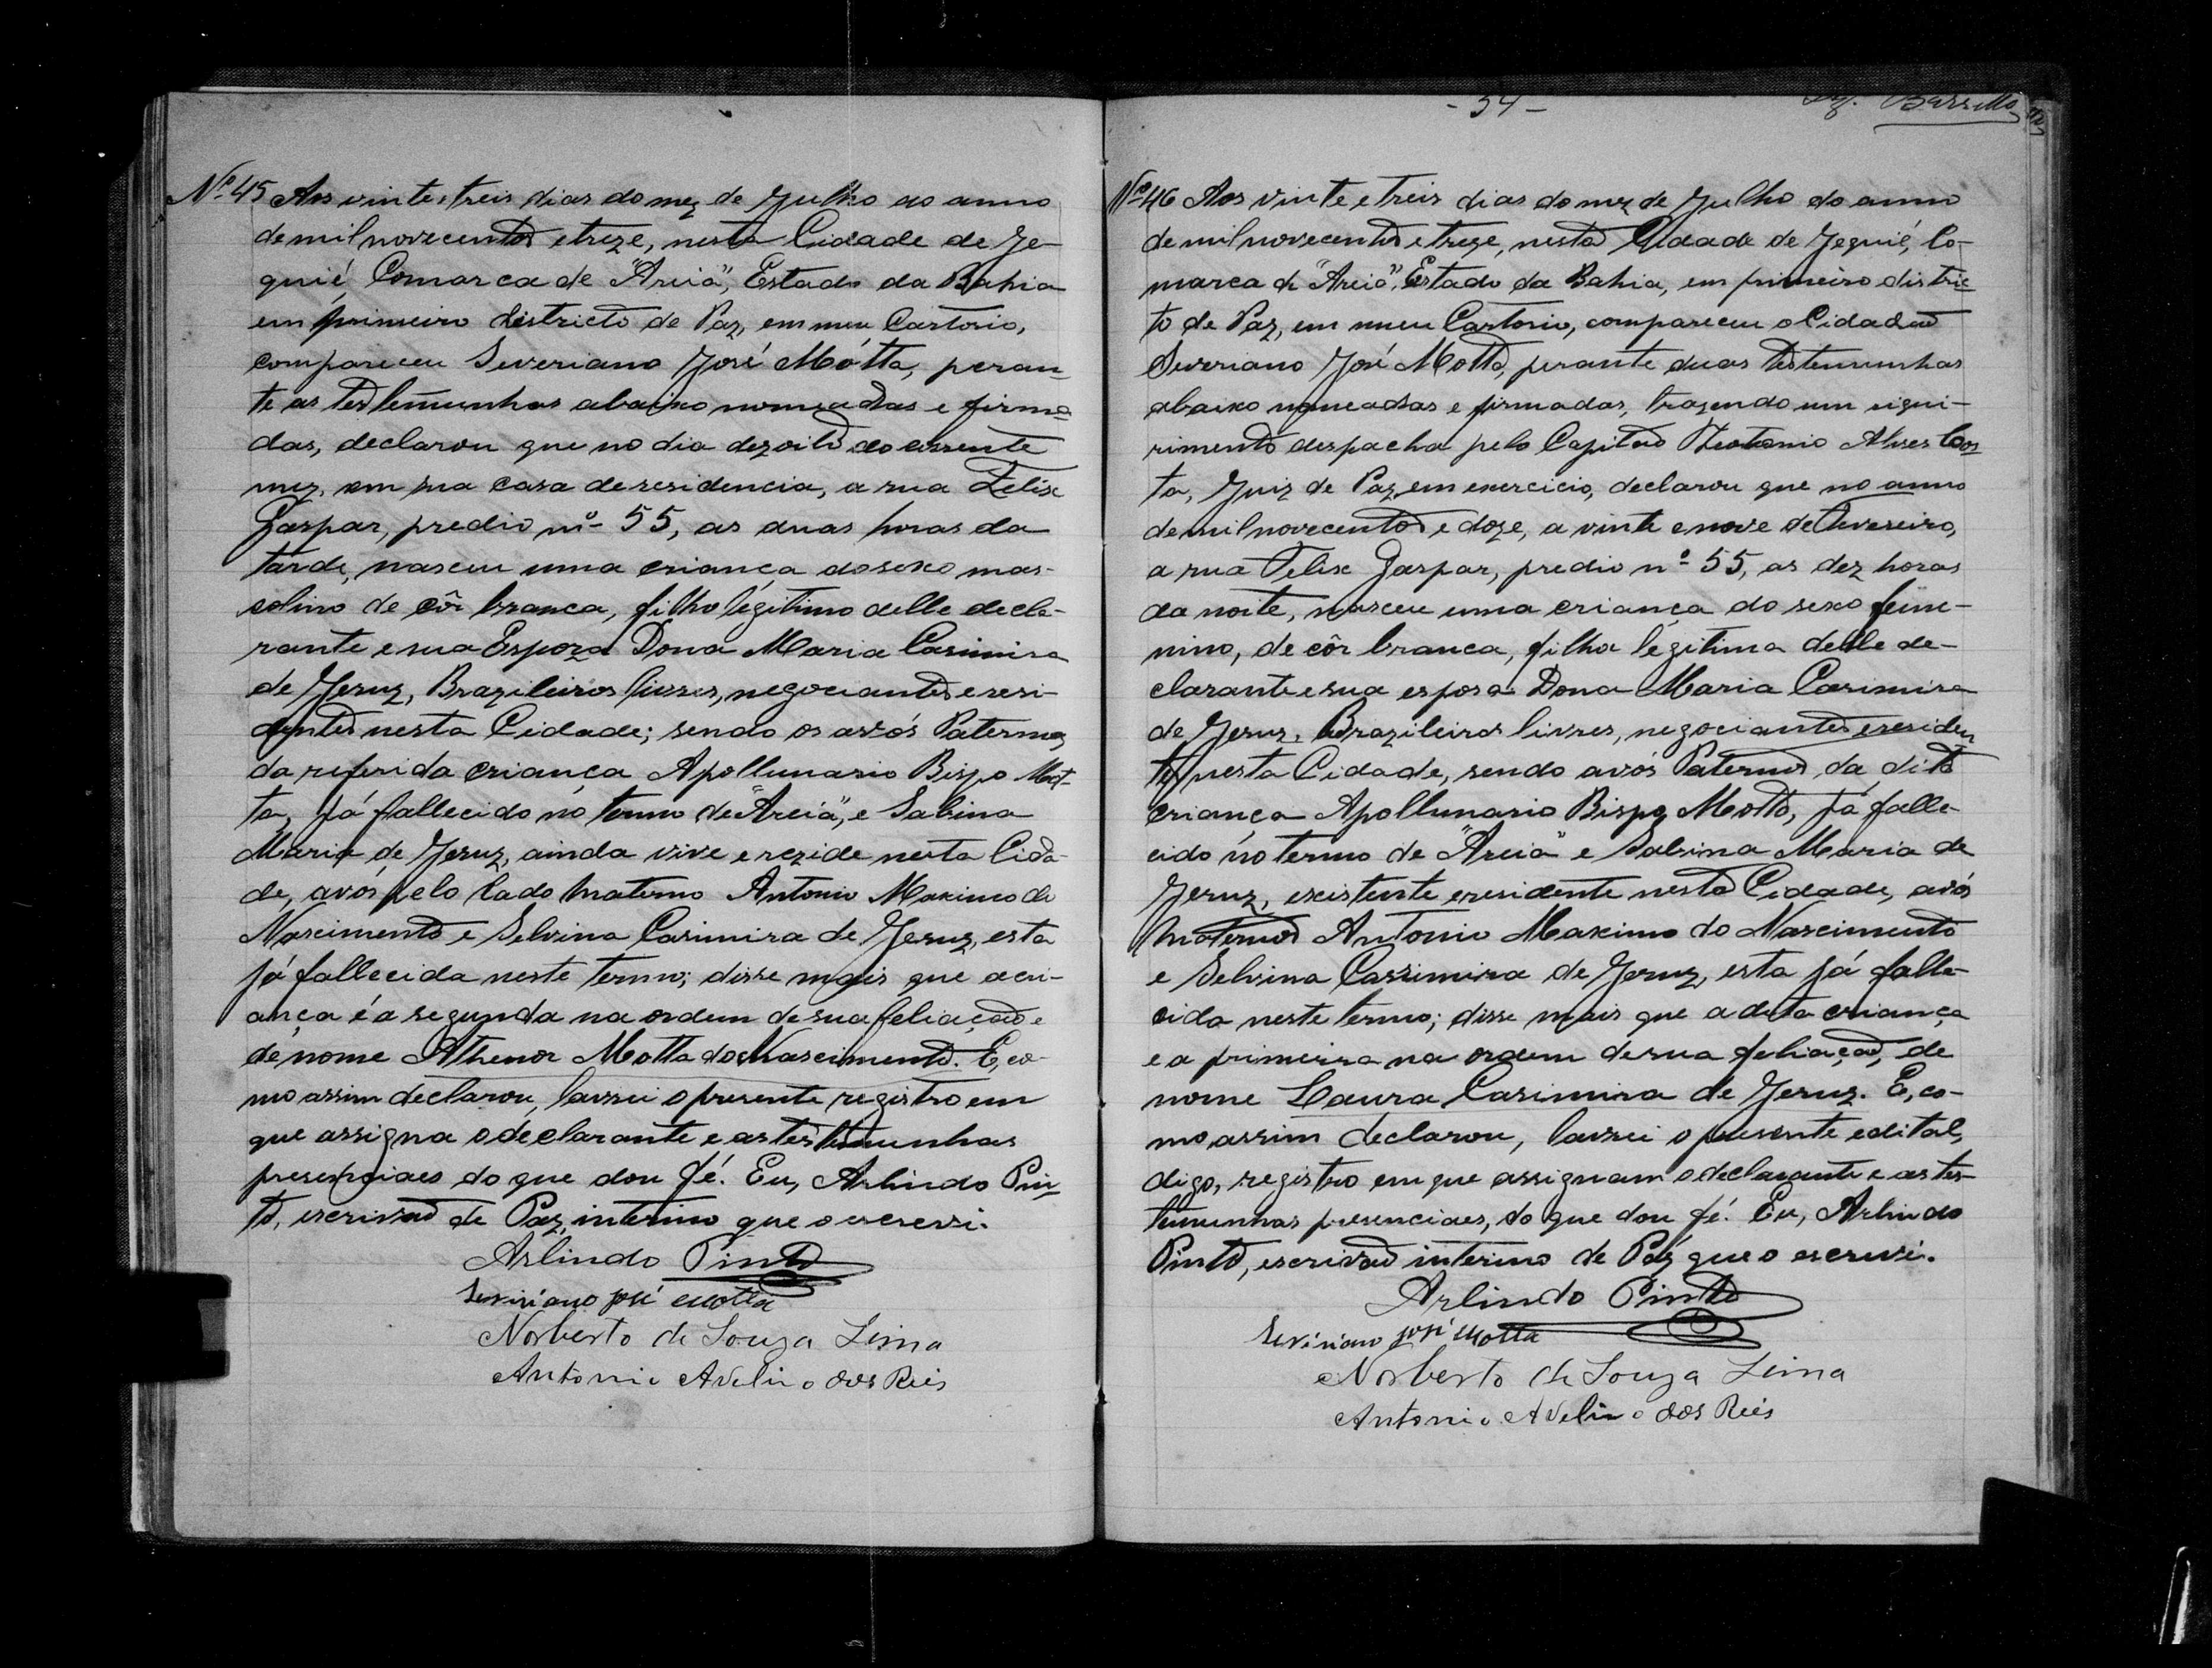 Nº 45 Aos vinte e treis dias do mez de Julho do anno
de mil novecentos e treze, nesta Cidade de Je-
quié, Comarca de "Areia", Estado da Bahia
em primeiro districto de Paz, em meu Cartorio,
compareceu Severiano José Mótta, peran-
te as testemunhas abaixo nomeadas e firma
das, declarou que no dia dezoito do corrente
mez, em sua casa de residencia, a rua Felix
Gaspar, predio nº 55, as duas horas da
tarde, nasceu uma criança do sexo mas-
colino de côr branca, filho légitimo delle decla-
rante e sua Espoza Dona Maria Casimira
de Jezuz, Brazileiros livres, negociantes e resi-
dentes nesta Cidade; sendo os avós Paternos
da referida criança Apollunario Bispo Mot-
ta, já fallecido no termo de "Areia", e Sabina
Maria de Jezuz, ainda vive e rezide nesta Cida-
de, avós pelo lado Materno Antonio Maximo do
Nascimento e Selvina Casimira de Jezuz, esta
já fallecida neste termo; disse mais que a cri-
ança é a segunda na ordem de sua feliação e
de nome Athenor Motta do Nascimento. E, co-
mo assim declarou, lavrei o presente registro em
que assigna o declarante e as testemunhas
presenciaes do que dou fé. Eu, Arlindo Pin-
to, escrivão de Paz, interino que o escrevi.
Arlindo Pinto
Siviriano José Motta
Norberto de Souza Lima
Antonio Avelino dos Reis
- 54 -
Barretto
Nº 46 Aos vinte e treis dias do mez de Julho do anno
de mil novecentos e treze, nesta Cidade de Jequié, Co-
marca de "Areia", Estado da Bahia, em primeiro distric-
to de Paz, em meu Cartorio, compareceu o Cidadão
Severiano José Motta, perante duas testemunhas
abaixo nomeadas e firmadas, trazendo um riqui-
rimento despacha pelo Capitão Theotonio Alves Cos-
ta, Juiz de Paz em exercicio, declarou que no anno
de mil novecentos e doze, a vinte e nove de Fevereiro,
a rua Felix Gaspar, predio nº 55, as dez horas
da noite, nasceu uma criança do sexo femi-
nino, de côr branca, filha legitima delle de-
clarante e sua esposa Dona Maria Casimira
de Jezuz, Brazileiros livres, negociantes e residen
tes nesta Cidade, sendo avós Paternos da dita
criança Apollunario Bispo Motta, já falle-
cido no termo de "Areia" e Sabina Maria de
Jezuz, existente e residente nesta Cidade, avós
Maternos Antonio Maximo do Nascimento
e Selvina Cassimira de Jezuz, esta já falle-
cida neste termo; disse mais que a dita criança
e a primeira na ordem de sua feliação, de
nome Laura Casimira de Jezuz. E, co-
mo assim declarou, lavrei o presente edital,
digo, registro em que assignam o declarante e as tes-
temunhas presenciaes, do que dou fé. Eu, Arlindo
Pinto, escrivão interino de Paz que o escrevi.
Arlindo Pinto
Siviriano José Motta
Norberto de Souza Lima
Antonio Avelino dos Reis